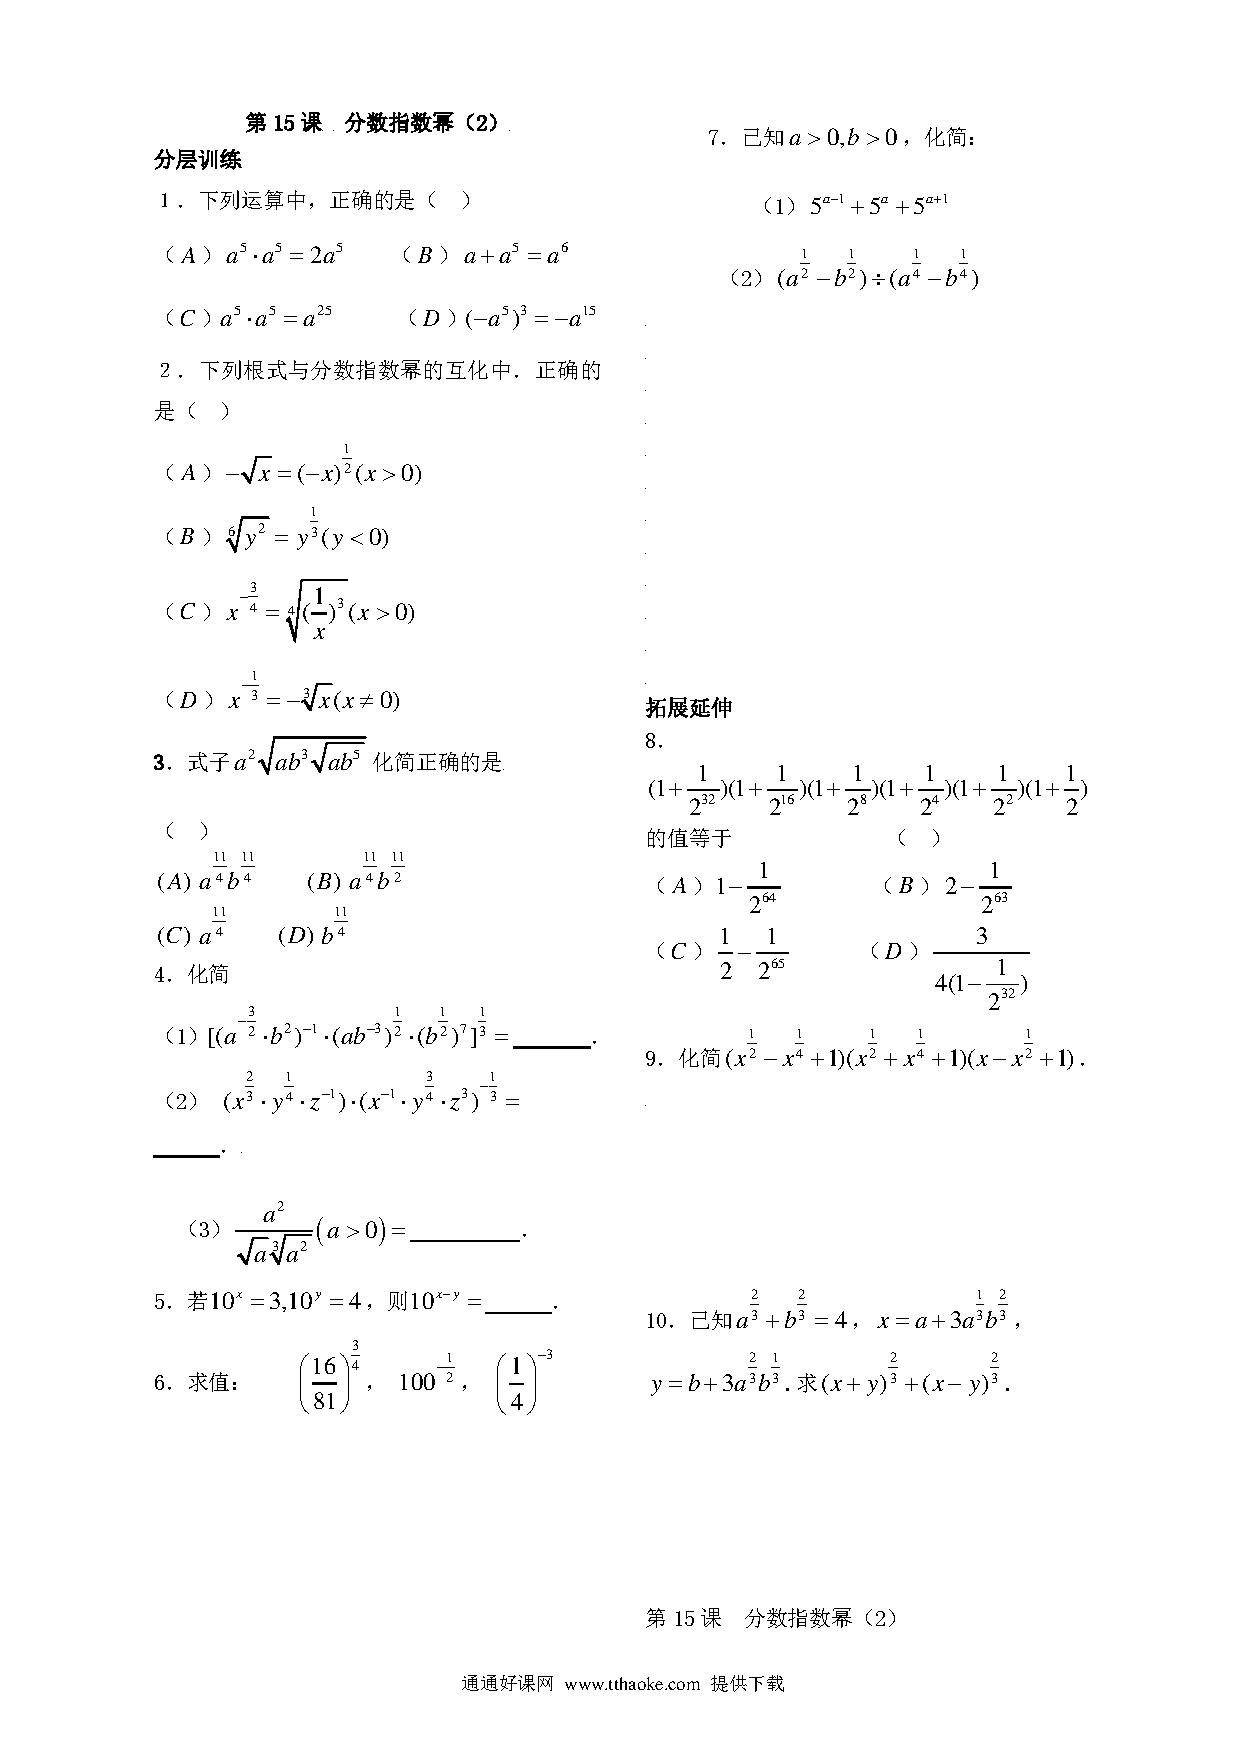 第 15 课 分数指数幂（2）
分层训练
1．下列运算中，正确的是（ ）
（A）a⁵·a⁵ = 2a⁵ （B）a+a⁵ = a⁶
（C）a⁵·a⁵ = a²⁵ （D）(−a⁵)³ = −a¹⁵
2．下列根式与分数指数幂的互化中．正确的
是（ ）
（A）−√x = (−x)^(1/2) (x > 0)
（B）⁶√(y²) = y^(1/3) (y < 0)
（C）x^(−3/4) = ⁴√((1/x)³) (x > 0)
（D）x^(−1/3) = −³√x (x ≠ 0)
3．式子a²√(ab³√(ab⁵)) 化简正确的是
（ ）
(A) a^(11/4)b^(11/4) (B) a^(11/4)b^(11/2)
(C) a^(11/4) (D) b^(11/4)
4．化简
（1）[(a^(−3/2)·b²)⁻¹·(ab⁻³)^(1/2)·(b^(1/2))⁷]^(1/3) = ______．
（2） (x^(2/3)·y^(1/4)·z⁻¹)·(x⁻¹·y^(3/4)·z³)^(−1/3) =
______．
（3） a²/(√a ³√(a²)) (a > 0) = ______．
5．若10^x = 3,10^y = 4，则10^(x−y) = ______．
6．求值： (16/81)^(3/4)， 100^(−1/2)， (1/4)^(−3)
7．已知a > 0,b > 0，化简：
（1）5^(a−1) + 5^a + 5^(a+1)
（2）(a^(1/2) − b^(1/2)) ÷ (a^(1/4) − b^(1/4))
拓展延伸
8．
(1+1/2³²)(1+1/2¹⁶)(1+1/2⁸)(1+1/2⁴)(1+1/2²)(1+1/2)
的值等于 （ ）
（A）1−1/2⁶⁴ （B）2−1/2⁶³
（C）1/2 − 1/2⁶⁵ （D）3/(4(1−1/2³²))
9．化简(x^(1/2) − x^(1/4) +1)(x^(1/2) + x^(1/4) +1)(x − x^(1/2) +1)．
10．已知a^(2/3) + b^(2/3) = 4，x = a+3a^(1/3)b^(2/3)，
y = b+3a^(2/3)b^(1/3)．求(x+y)^(2/3) + (x−y)^(2/3)．
第 15 课 分数指数幂（2）
通通好课网 www.tthaoke.com 提供下载